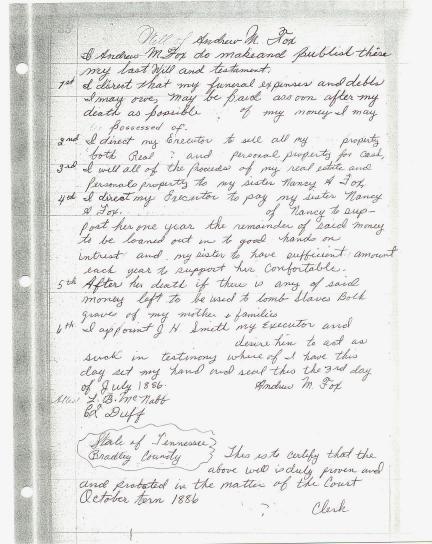 Will of Andrew M. Fox
I Andrew M. Fox do make and publish these
my last Will and testament.
1st I direct that my funeral expenses and debts
I may owe, may be paid as soon after my
death as possible of my money I may
possessed of.
2nd I direct my Executor to sell all my property
both Real ? and personal property for cash,
3rd I will all of the proceeds of my real estate and
Personal property to my sister Nancy A Fox,
4th I direct my Executor to pay my sister Nancy
A Fox. of Nancy to sup-
port her one year the remainder of said money
to be loaned out in to good hands on
intrest and my sister to have sufficient amount
each year to support her Confortable.
5th After her death if there is any of said
money left to be used to tomb Slaves Both
graves of my mother & families
6th I appoint J H Smith my Executor and
desire him to act as
such in testimony where of I have this
day set my hand and seal this the 3rd day
of July 1886. Andrew M. Fox
Attest L. B. McNabb
Ed Duff
State of Tennessee
Bradley County This is to certify that the
above will is duly proven and
and probated in the matter of the Court
October term 1886
? Clerk